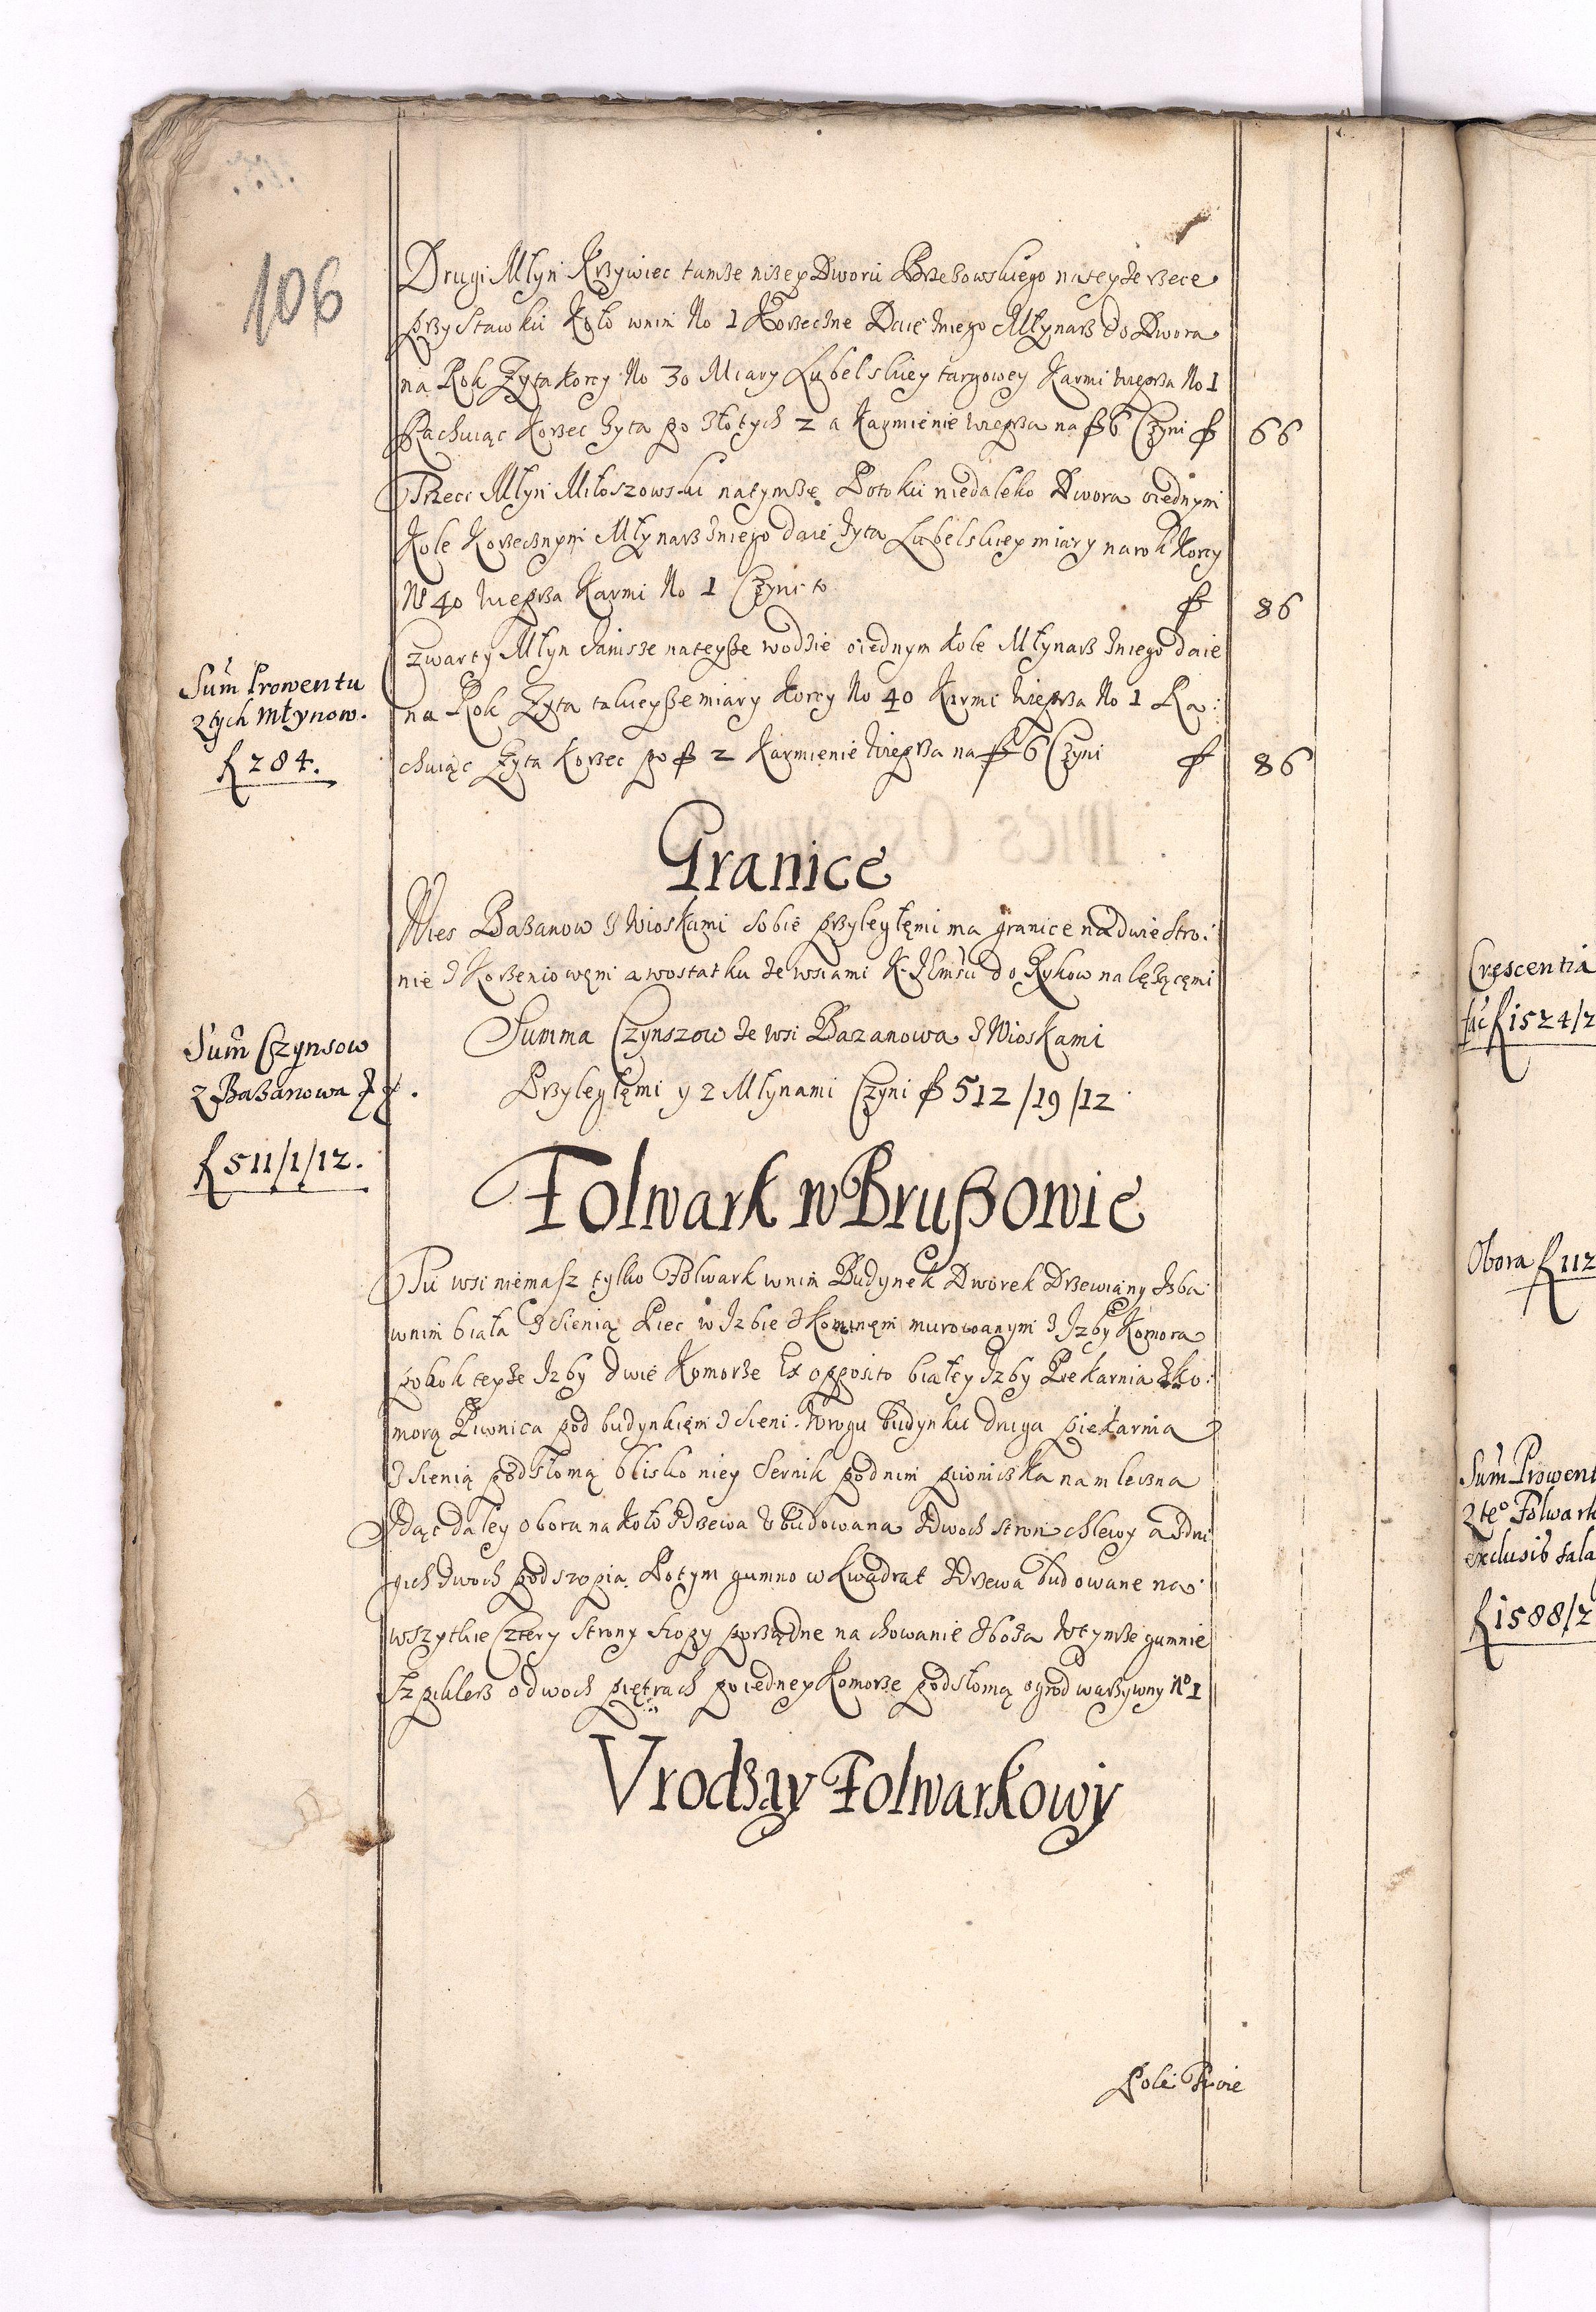 106
Drugi Młyn Krzywiec tamże niżey Dworu Brzezowskiego nateyże rzece
przy Stawku Koło wnim No 1 Korzeczne Daie zniego Młynarz do Dwora
na Rok Zyta korcy No 30 Miary Lubelskiey targowey Karmi wieprza No 1
Rachuiąc Korzec żyta po złotych 2 a Karmienie wieprza na f 6 Czyni f 66
Trzeci Młyn Miłoszowski natymże Potoku niedaleko Dwora oiednym
Kole Korzecznym Młynarz zniego daie żyta Lubelskiey miary narok Korcy
No 40 wieprza Karmi No 1 Czyni to f 86
Czwarty Młyn Janisze nateyże wodzie oiednym kole Młynarz zniego daie
na Rok Zyta takieyże miary Korcy No 40 Karmi wieprza No 1 Ra:
chuiąc Zyta Korzec po f 2 Karmienie wieprza na f 6 Czyni f 86
Sum Prowentu
z tych Młynow.
f 284.
Granice
Wies Bazanow z Wioskami sobie przyległemi ma granice nadwie stro:
nie z Korzeniowem a wostatku ze wsiami K. J Emsci do Rykow należącemi
Summa Czynszow ze wsi Bazanowa z Wioskami
Przyległemi y z Młynami Czyni f 512/19/12
Sum Czynsow
z Bazanowa
f 511/1/12.
Folwark w Brußowie
Tu wsi niemasz tylko Folwark wnim Budynek Dworek Drzewiany Izba
wnim biała z sienią Piec w Izbie z Kominem murowanym z Izby Komora
pobok teyże Izby dwie Komorze Ex opposito białey Izby Piekarnia zko:
morą Piwnica pod budynkiem z sieni. Wrogu budynku druga piekarnia
z sienią podsłomą blisko niey Sernik podnim piwniczka na mleczna
Idąc daley obora na koło zdrzewa zbudowana zdwoch stron chlewy a zdru
gich dwoch podszopia. Potym gumno w kwadrat zdrzewa budowane na
wszytkie cztery strony szopy porządne na chowanie zboża wtymże gumnie
Szpiklerz odwoch piętrach poiedney Komorze podsłomą ogrod warzywny No 1
Vrodzay Folwarkowy
Pole
Crescentia
fac f 1524/2
Obora f 112
Sum Prowent
z te° Folwark
exclusis sala
f 1588/2